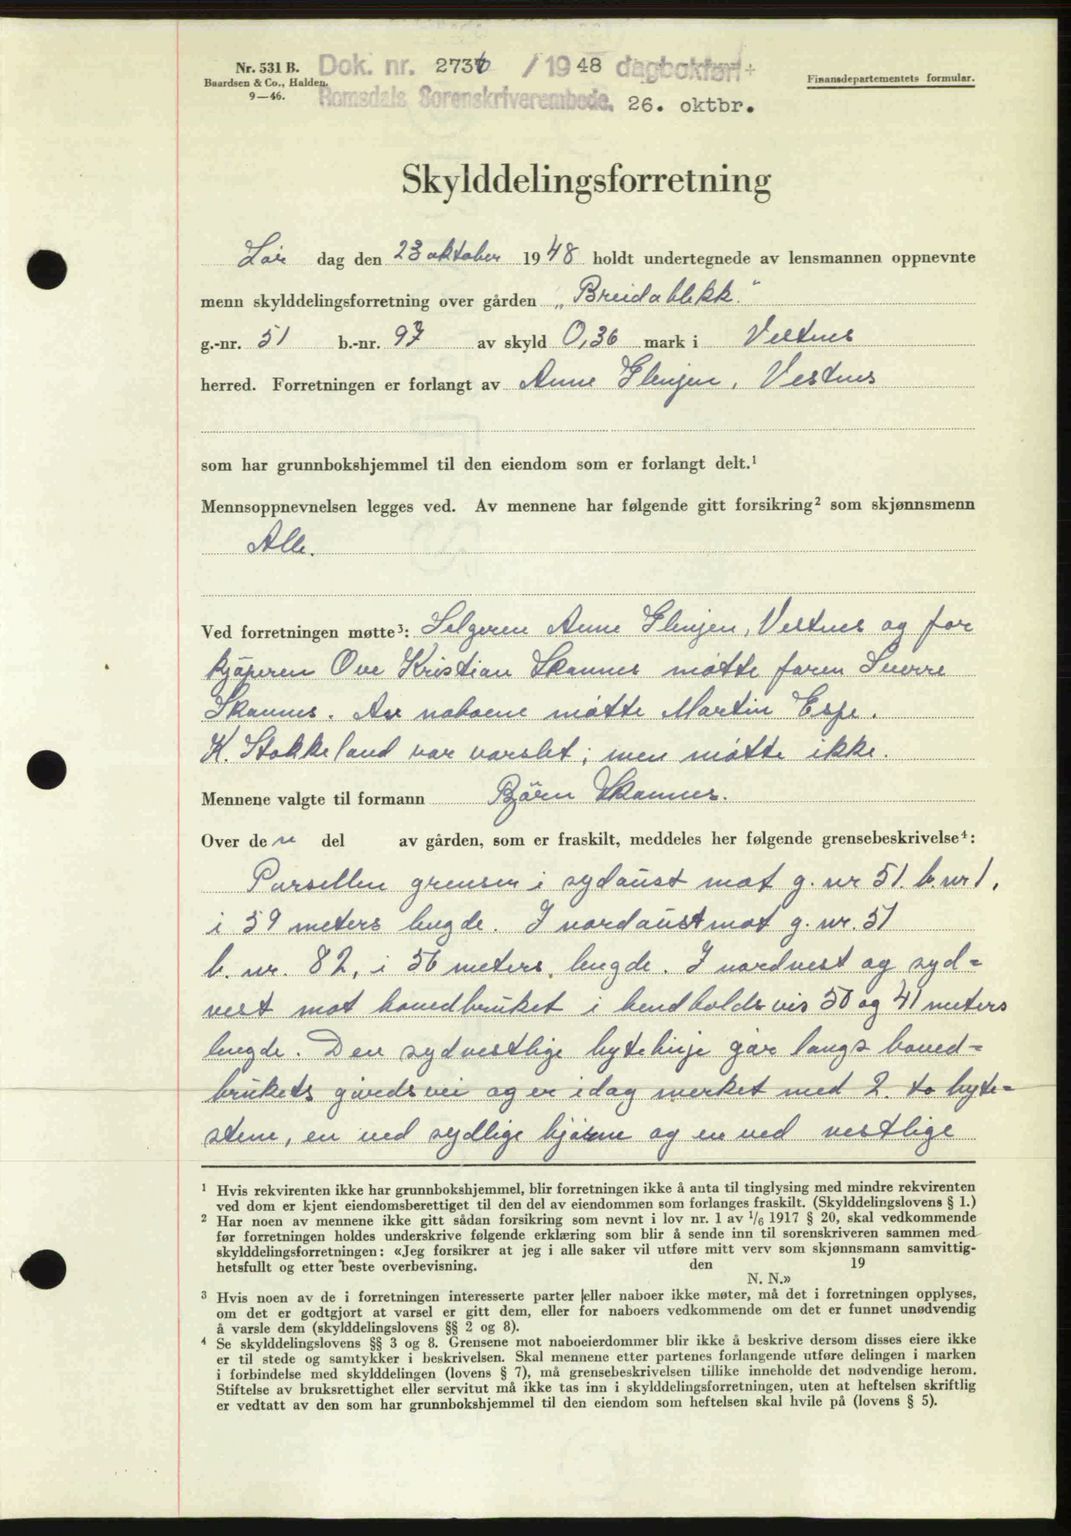 Nr. 531 B.
Baardsen & Co., Halden.
9—46.
Dok. nr. 2736 / 1948 dagbokført
Romsdals Sorenskriverembede. 26. oktbr.
Finansdepartementets formular.
Skylddelingsforretning
Lör dag den 23 oktober 1948 holdt undertegnede av lensmannen oppnevnte
menn skylddelingsforretning over gården „Breidablikk."
g.-nr. 51 b.-nr. 97 av skyld 0,36 mark i Vestnes
herred. Forretningen er forlangt av Anne , Vestnes
som har grunnbokshjemmel til den eiendom som er forlangt delt.¹
Mennsoppnevnelsen legges ved. Av mennene har følgende gitt forsikring² som skjønnsmenn
Alle.
Ved forretningen møtte³: Selgeren Anne , Vestnes og for
kjøperen Ove Kristian Skannes møtte faren Sverre
Skannes. Av naboene møtte Martin Espe.
K. Stokkeland var varslet; men møtte ikke.
Mennene valgte til formann Björn Skannes.
Over den del av gården, som er fraskilt, meddeles her følgende grensebeskrivelse⁴:
Parsellen grenser i sydaust mot g. nr 51. b. nr 1,
i 59 meters lengde. I nordaust mot g. nr. 51
b. nr. 82, i 56 meters lengde. I nordvest og syd=
vest mot hovedbruket i hendholdsvis 50 og 41 meters
lengde. Den sydvestlige bytelinje går langs hoved=
brukets gårdsvei og er idag merket med 2. to byte=
stene, en ved sydlige hjörne og en ved vestlige
¹ Hvis rekvirenten ikke har grunnbokshjemmel, blir forretningen ikke å anta til tinglysing med mindre rekvirenten
ved dom er kjent eiendomsberettiget til den del av eiendommen som forlanges fraskilt. (Skylddelingslovens § 1.)
² Har noen av mennene ikke gitt sådan forsikring som nevnt i lov nr. 1 av ¹/₆ 1917 § 20, skal vedkommende
før forretningen holdes underskrive følgende erklæring som blir å sende inn til sorenskriveren sammen med
skylddelingsforretningen: «Jeg forsikrer at jeg i alle saker vil utføre mitt verv som skjønnsmann samvittig-
hetsfullt og etter beste overbevisning. den 19
N. N.»
³ Hvis noen av de i forretningen interesserte parter eller naboer ikke møter, må det i forretningen opplyses,
om det er godtgjort at varsel er gitt dem, eller for naboers vedkommende om det er funnet unødvendig
å varsle dem (skylddelingslovens §§ 2 og 8).
⁴ Se skylddelingslovens §§ 3 og 8. Grensene mot naboeierdommer blir ikke å beskrive dersom disses eiere ikke
er til stede og samtykker i beskrivelsen. Skal mennene etter partenes forlangende utføre delingen i marken
i forbindelse med skylddelingen (lovens § 7), må grensebeskrivelsen tillike inneholde det nødvendige herom.
Stiftelse av bruksrettighet eller servitut må ikke tas inn i skylddelingsforretningen, uten at heftelsen skriftlig
er vedtatt av den som har grunnbokshjemmel til den eiendom som heftelsen skal hvile på (lovens § 5).